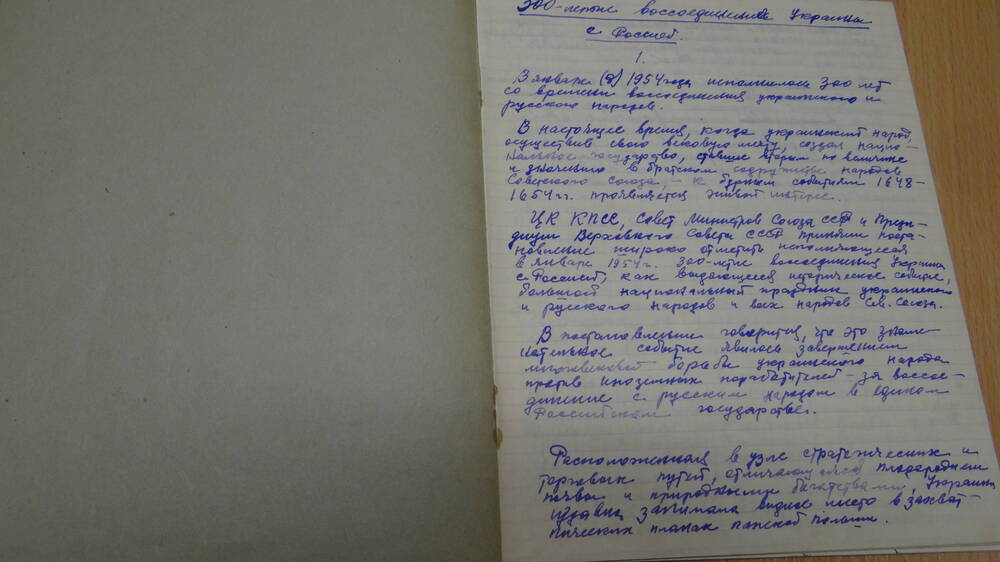 300-летие воссоединения Украины
с Россией.
1.
В январе (8) 1954 года исполнилось 300 лет
со времени воссоединения украинского и
русского народов.
В настоящее время, когда украинский народ,
осуществив свою вековую мечту, создал нацио-
нальное государство, ставшее вторым по величине
и значению в братском содружестве народов
Советского Союза, – к бурным событиям 1648-
1654 гг. проявляется живой интерес.
ЦК КПСС, Совет Министров Союза ССР и Прези-
диум Верховного Совета СССР приняли поста-
новление широко отметить исполняющееся
в январе 1954 г. 300-летие воссоединения Украины
с Россией, как выдающееся историческое событие,
большой национальный праздник украинского
и русского народов и всех народов Сов. Союза.
В постановлении говорится, что это знаме-
нательное событие явилось завершением
многовековой борьбы украинского народа
против иноземных поработителей – за воссое-
динение с русским народом в едином
Российском государстве.
Расположенная в узле стратегических и
торговых путей, отличающаяся плодородием
почвы и природными богатствами, Украина
издавна занимала видное место в захват-
нических планах панской Польши.